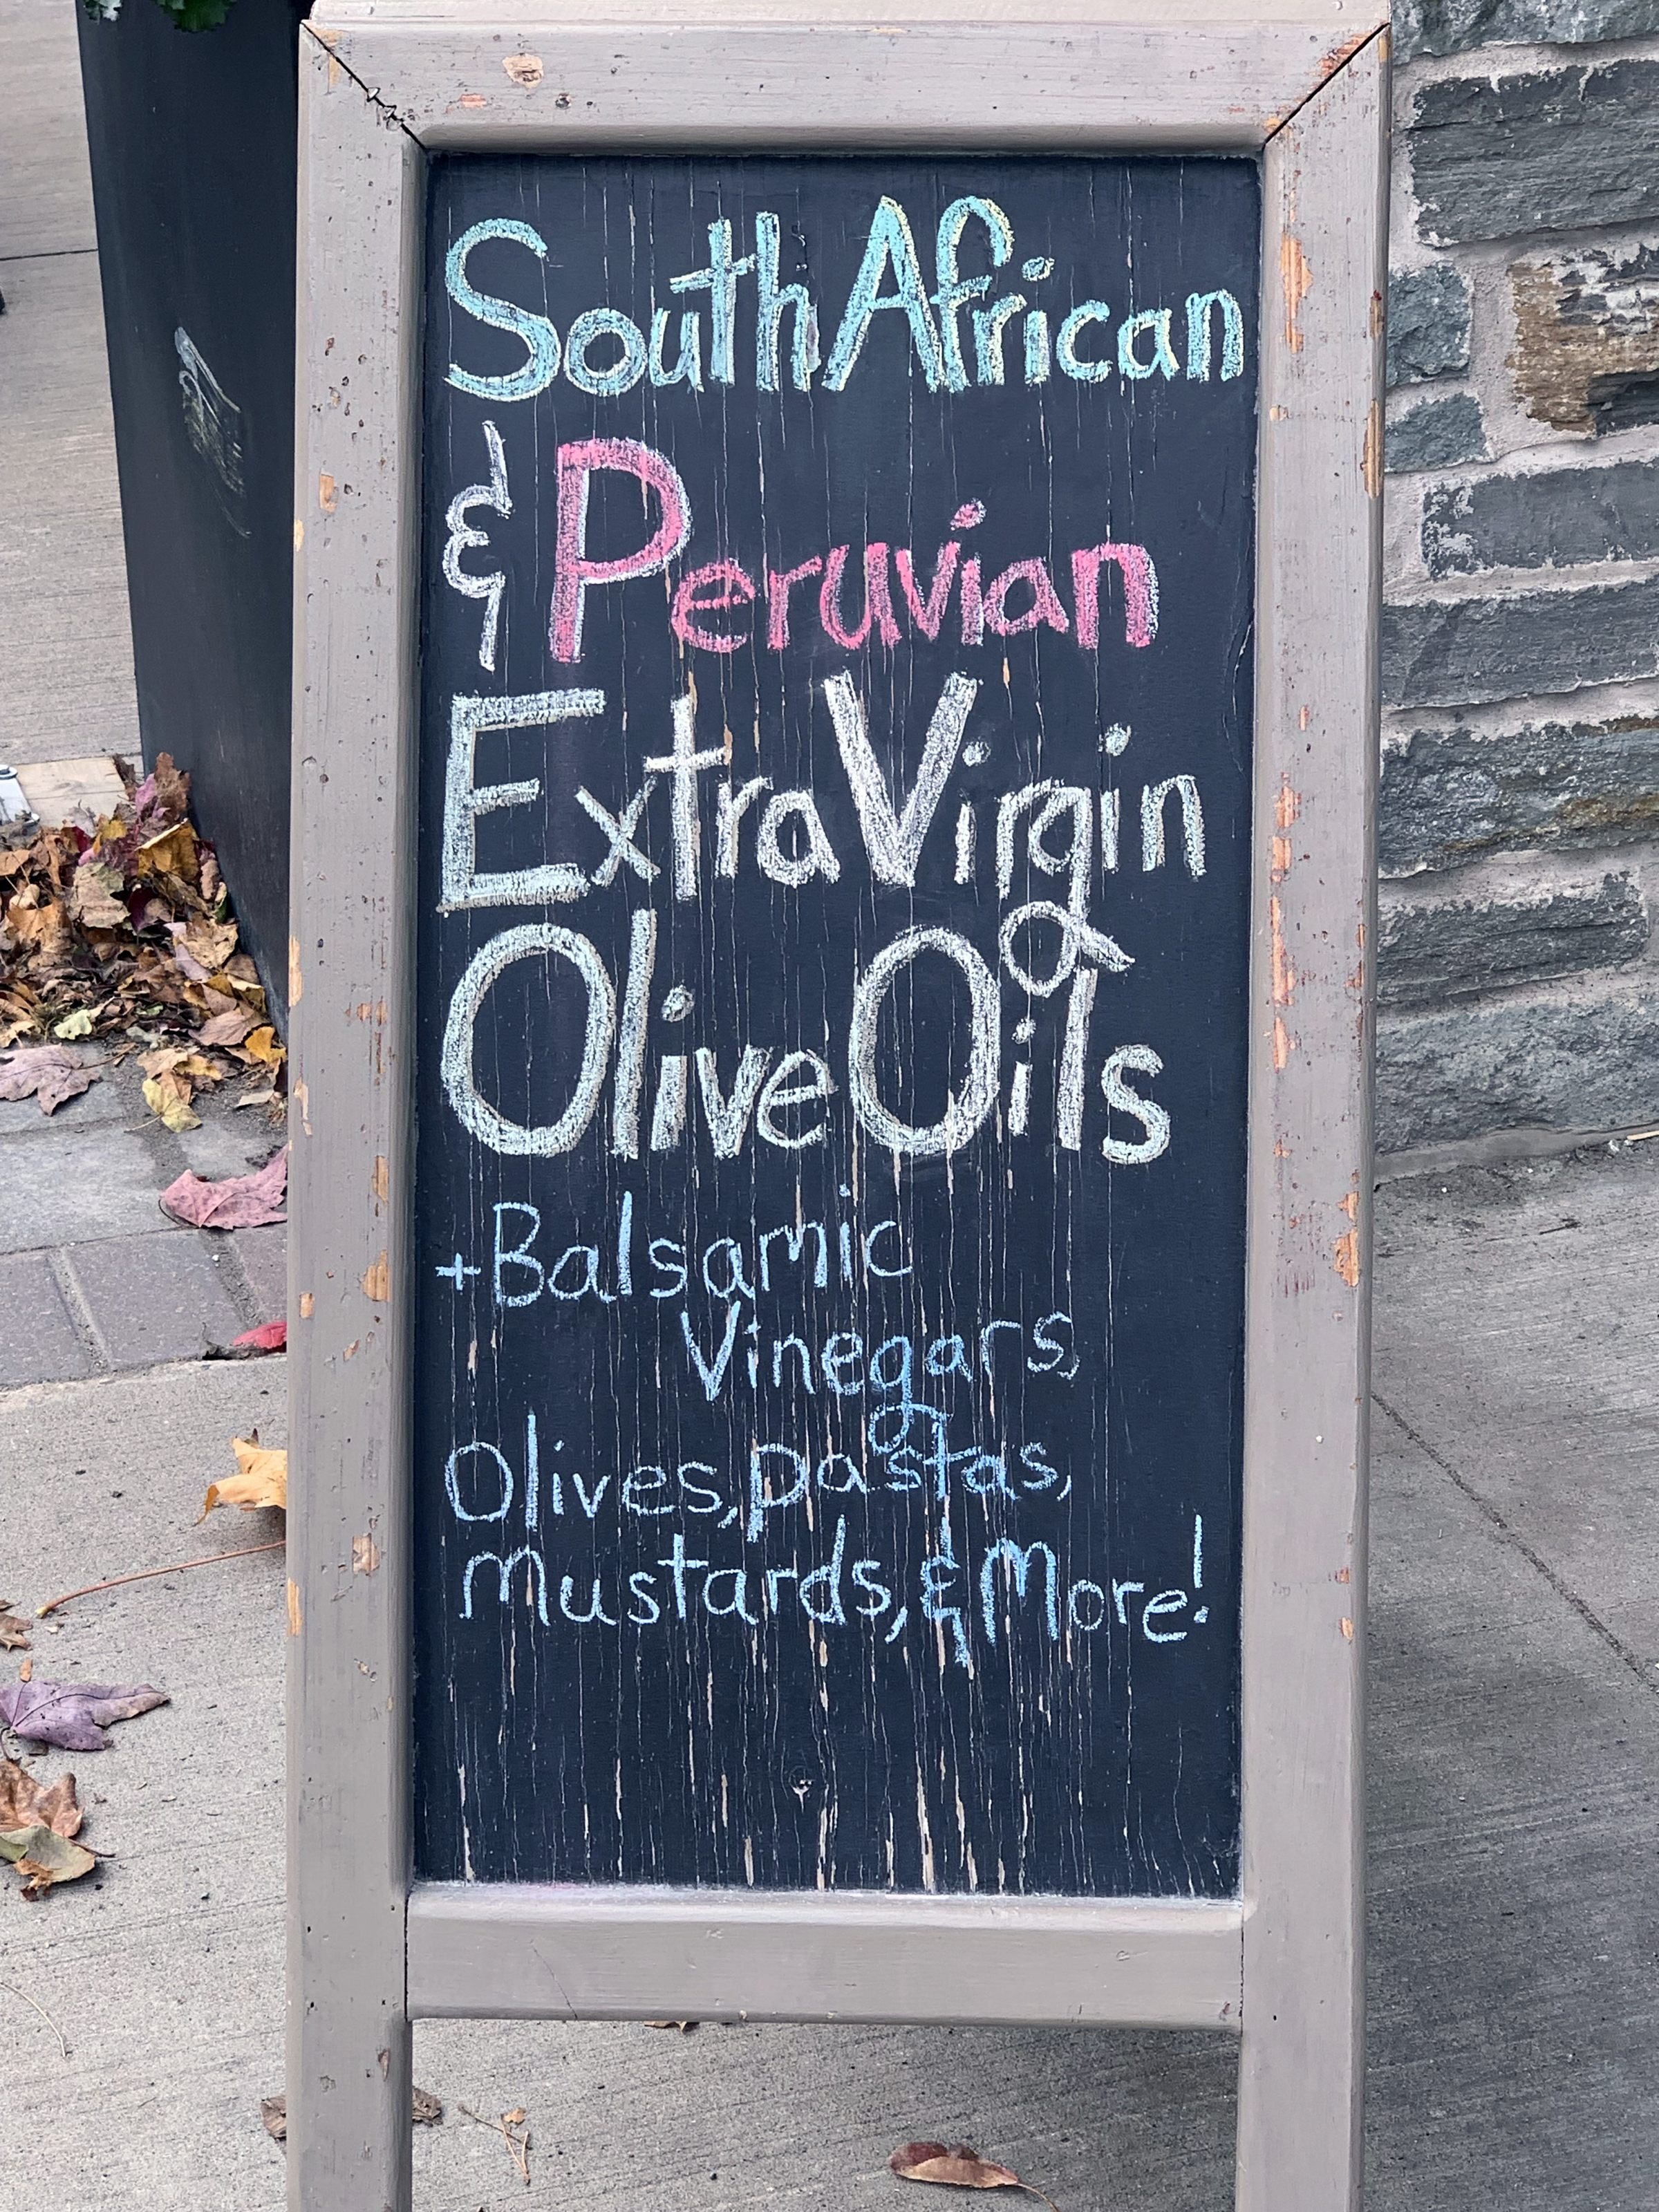 South African
& Peruvian
Extra Virgin
Olive Oils
+Balsamic
Vinegars,
Olives, pastas,
mustards, & More!